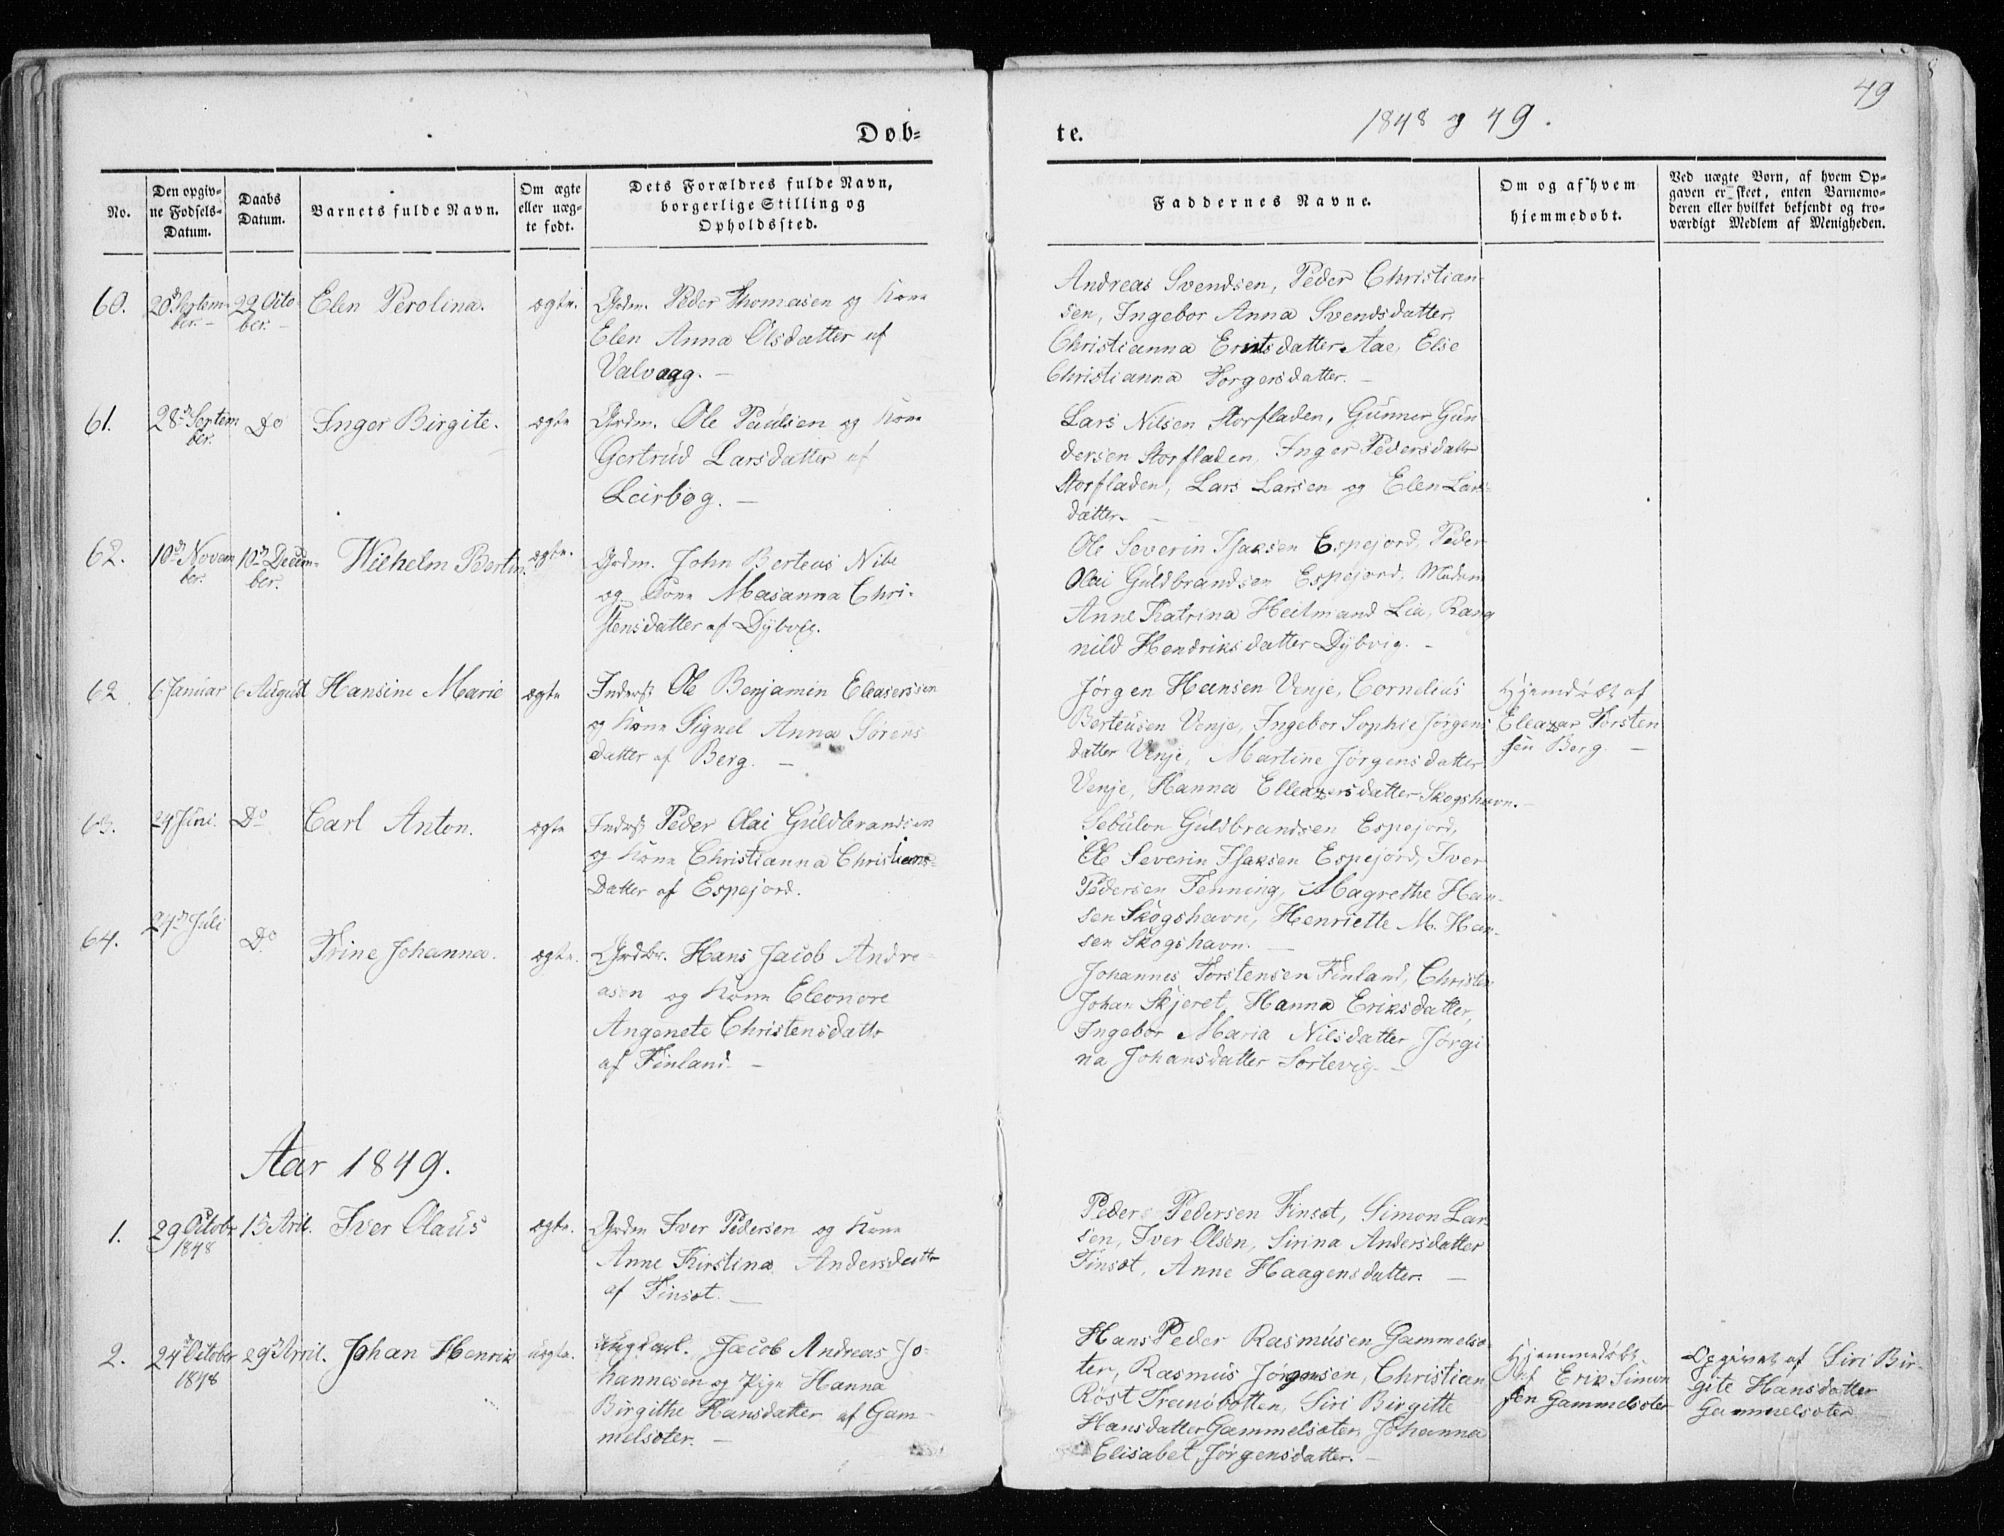 49
1848 og 49.
Døb-
te.
No.
Den opgiv-
ne Fødsels-
Datum.
Daabs
Datum.
Barnets fulde Navn.
Om ægte
eller uæg-
te født.
Dets Forældres fulde Navn,
borgerlige Stilling og
Opholdssted.
Faddernes Navne.
Om og af hvem
hjemmedøbt.
Ved uægte Born, af hvem Op-
gaven er skeet, enten Barnemo-
deren eller hvilket bekjendt og tro-
værdigt Medlem af Menigheden.
60.
Septem-
ber.
29 Octo-
ber.
Elen Perolina.
ægte.
Grdm. Peder Thomasen og Kone
Elen Anna Olsdatter af
Valvaag.
Andreas Svendsen, Peder Christian-
sen, Ingebor Anna Svendsdatter,
Christianna Aae, Else
Christianna Torgersdatter.
61.
28de Septem
ber.
Do
Inger Birgite.
ægte
Grdm. Ole Paulsen og Kone
Gertrud Larsdatter af
Leirbog.
Lars Nilsen Storfladen, Gunner Gun-
dersen Storfladen, Inger Pedersdatter
Storfladen, Lars Larsen og Elen Lars-
datter.
62.
10de Novem
ber.
10de Decem-
ber.
Wilhelm Bertin.
ægte.
Grdm. John Berteus Nibe
og Kone Masanna Chri-
stensdatter af Dybvig.
Ole Severin Isaksen Espejord, Peder
Olai Guldbrandsen Espejord, Madam
Anne Katrina Heitmand Lia, Rang
nild Hendriksdatter Dybvig.
62.
6 Januar
6 August
Hansine Marie
ægte
Inderst Ole Benjamin Eleaserssen
og Kone Signel Anna Sørens
datter af Berg.
Jørgen Hansen Venje, Cornelius
Berteusen Venje, Ingebor Sophie Jørgens
datter Venje, Martine Jørgensdatter
Venje, Hanna Elleazersdatter Skogshavn.
Hjemdøbt af
Eleazar Torsten
sen Berg.
63.
24 Juni.
Do
Carl Anton.
ægte
Inderst Peder Olai Guldbrandsen
og Kone Christianna Christians-
Datter af Espejord.
Sebulon Guldbrandsen Espejord,
Ole Severin Isaksen Espejord, Iver
Pedersen Tenning, Magrethe Han-
sen Skogshavn, Henriette M. Han-
sen Skogshavn.
64.
24de Juli
Do
Trine Johanna.
ægte.
Grdbr. Hans Jacob Andre-
asen og Kone Eleonore
Angenete Christensdattr
af Finland.
Johannes Torstensen Finland, Christen
Johan Skjeret, Hanna Eriksdatter,
Ingebor Maria Nilsdatter, Jørgi
na Johansdatter Sortevig.
Aar 1849.
1.
29 Octobr
1848
15 April.
Iver Olaus
ægte.
Grdm Iver Pedersen og Kone
Anne Kirstina Andersdattr
af Finsæt.
Peder Pedersen Finsæt, Simon Lar-
sen, Iver Olsen, Sirina Andersdatter
Finsæt, Anne Haagensdatter.
2.
24de October
1848
29de April.
Johan Henrik
uægte.
Ungkarl. Jacob Andreas Jo-
hannesen og Pige Hanna
Birgithe Hansdatter af Gam-
melsæter.
Hans Peder Rasmusen Gammelsæ-
ter, Rasmus Jørgensen, Christian
Røst Tranøbotten, Siri Birgitte
Hansdatter Gammelsæter, Johanna
Elisabet Jørgensdatter.
Hjemmedøbt
af Erik Simon
sen Gammelsæter
Opgivet af Siri Bir-
gite Hansdatter
Gammelsæter